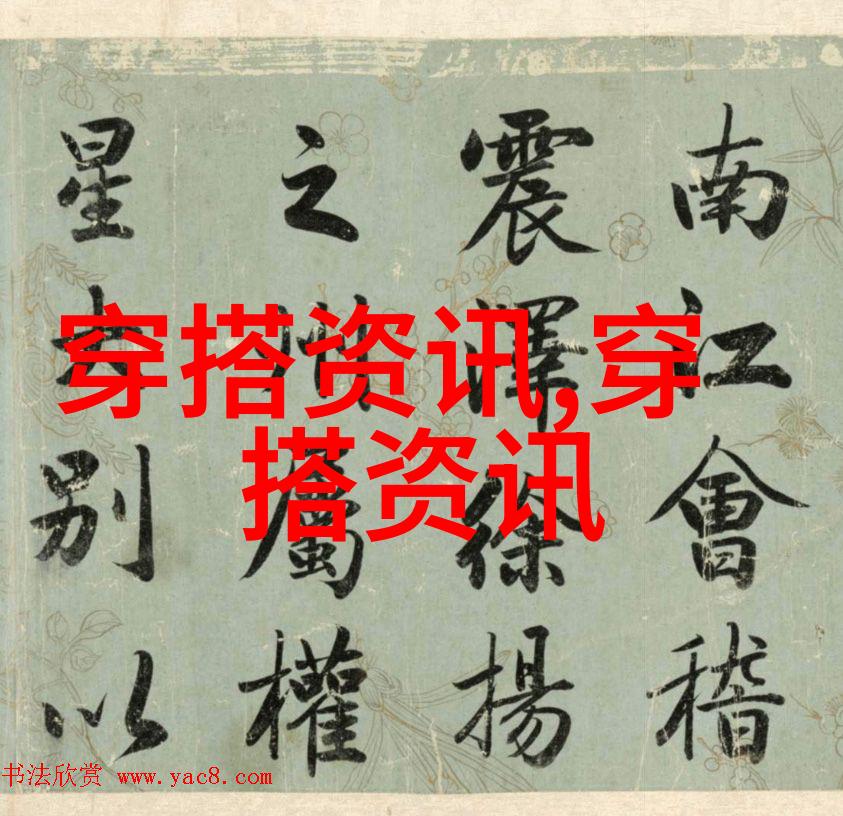 南江會稽
震澤徐揚
之屬權
星别以
穿搭资讯,穿
搭资讯
书法欣赏 www.yac8.com